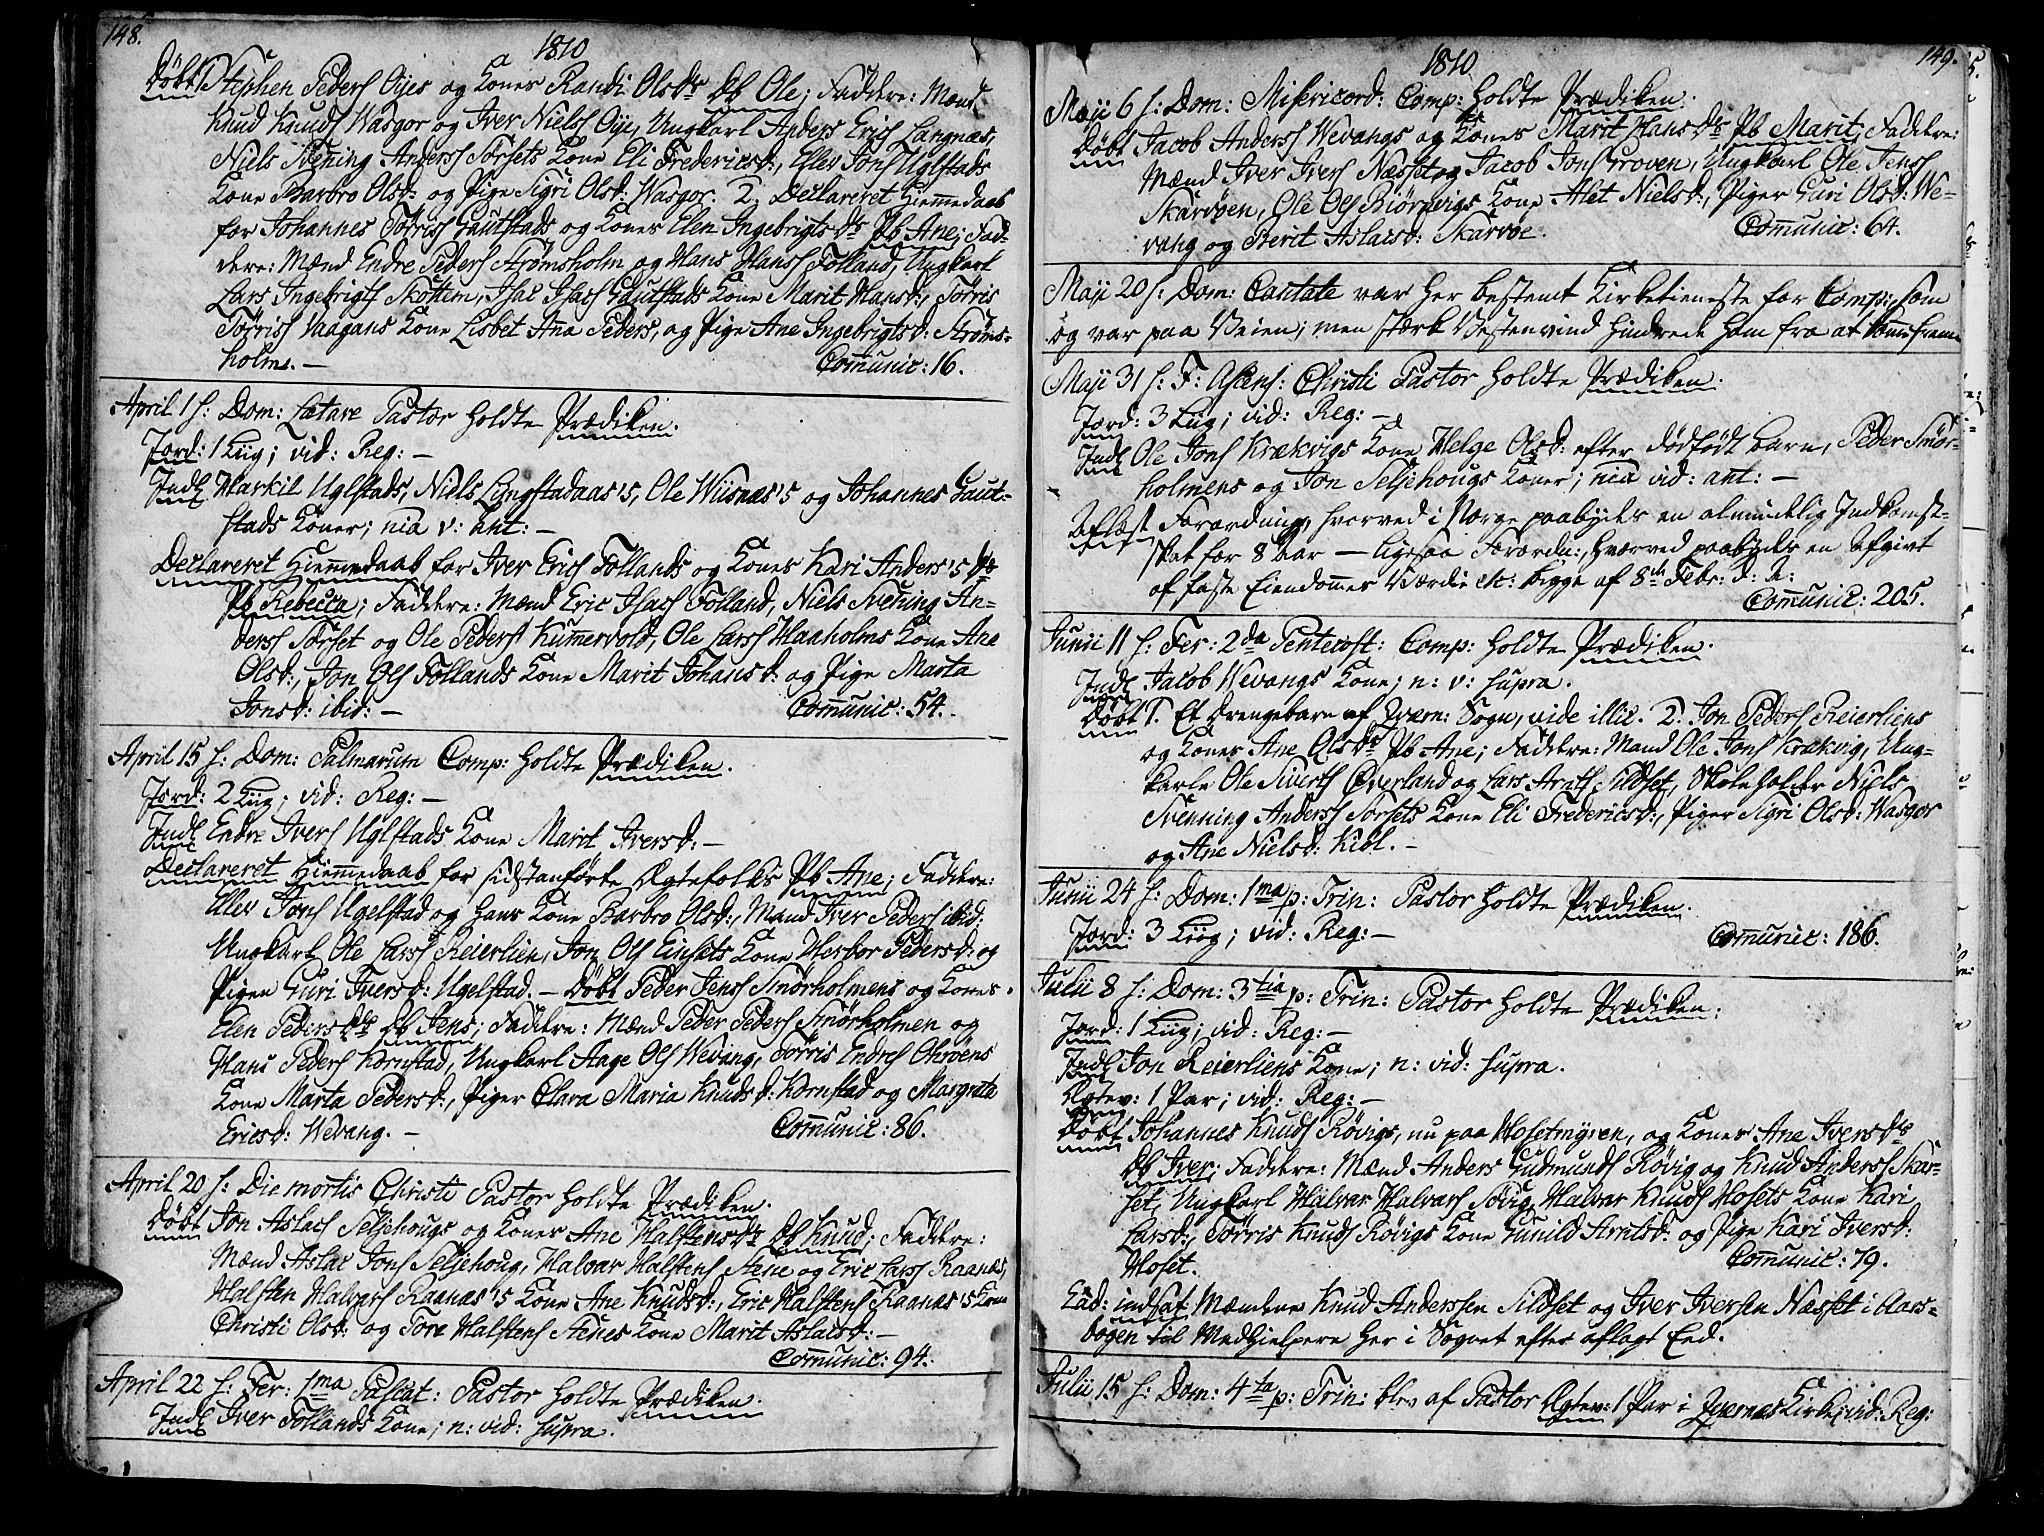 148.
1810
Döbt Stephen Peders Öyes og Kones Randi Olsdr Db Ole; Faddere: Mænd
Knud Knuds Wasgor og Iver Niels Öye, Ungkarl Anders Erics Langnæs,
Niels Svening Anderss Torsets Kone Eli Fredericsd:, Ellev Jons Uglstads
Kone Barbro Olsd: og Pige Sigri Olsd: Wasgor. 2. Declareret Hiemmedaab
for Johannes Törriss Gautstads og Kones Elen Ingebrigtsdr Pb Ane; Fad-
dere: Mænd Endre Peders Strömsholm og Hans Hanss Folland, Ungkarl
Lars Ingebrigts Skottem, Isac Isacs Gautstads Kone Marit Hansd:, Törris
Törriss Vaagans Kone Lisbet Ana Peders, og Pige Ane Ingebrigtsd: Ströms-
holm. — Communic: 16.
April 1 s: Dom: Lætare Pastor holdte Prædiken.
Jord: 1 Liig; vid: Reg: —
Indl Harkil Uglstads, Niels Lyngstadaas's, Ole Wiisnæs's og Johannes Gaut-
stads Koner; nia v: Ant: —
Declareret Hiemmedaab for Iver Erics Follands og Kones Kari Anders's dr
Pb Rebecca; Faddere: Mænd Eric Isacs Folland, Niels Svening An-
derss Torset og Ole Peders Kumervold, Ole Larss Haaholms Kone Ane
Olsd:, Jon Ols Follands Kone Marit Johansd: og Pige Marta
Jonsd: ibid: — Communic: 54. -
April 15 s: Dom: Palmarum Comp: holdte Prædiken.
Jord: 2 Liig; vid: Reg: —
Indl Endre Ivers Uglstads Kone Marit Iversd: —
Declareret Hiemmedaab for sidstanförte Ægtefolks Pb Ane; Faddere:
Ellev Jons Ugelstad og hans Kone Barbro Olsd:, Mand Iver Peders ibid:
Ungkarl Ole Larss Reierlien, Jon Ols Einsets Kone Herbor Pedersd: og
Pigen Guri Iversd: Ugelstad. — Döbt Peder Jenss Smörholmens og Kones
Elen Pedersdrs Db Jens; Faddere: Mænd Peder Peders Smörholmen og
Hans Peders Kornstad, Ungkarl Aage Ols Weving, Törris Endres Ohrvens
Kone Marta Pedersd:, Piger Clara Maria Knudsd: Kornstad og Margreta
Ericsd: Wevang. — Communic: 86.
April 20 s: Die mortis Christi Pastor holdte Prædiken.
Döbt Jon Aslacs Seljehougs og Kones Ane Halstensdr Db Knud; Faddere:
Mænd Aslac Jons Seljehoug, Halvar Halstens Stene og Eric Larss Raanæs,
Halsten Halvars Raanæs's Kone Ane Knudsd:, Eric Halstens Raanæs's Kone
Christi Olsd: og Tore Halstens Stenes Kone Marit Aslacsd: —
Communic: 94.
April 22 s: Fer: 1ma Pascat: Pastor holdte Prædiken.
Indl Iver Follands Kone; n: vid: supra.
149.
1810
Maji 6 s: Dom: Misericord: Comp: holdte Prædiken.
Döbt Jacob Anderss Wevangs og Kones Marit Hansdrs Pb Marit; Faddere:
Mænd Iver Ivers Næsset og Jacob Jons Proven, Ungkarl Ole Jenss
Skarvöen, Ole Ols Biörnvigs Kone Alet Nielsd:, Piger Guri Olsd: We-
vang og Berit Aslacsd: Skarvöe. Communic: 64.
Maji 20 s: Dom: Cantate var her bestemt Kirketieneste for Comp:, som
og var paa Veien; men stærk Vestenvind hindrede ham fra at komme frem
Maji 31 s: F: Ascens: Christi Pastor holdte Prædiken.
Jord: 3 Liig; vid: Reg: —
Indl Ole Jons Krækvigs Kone Helge Olsd: efter dödfödt barn, Peder Smör-
holmens og Jon Seljehougs Koner; nia vid: ant: —
Aflæst Forordning, hvorved i Norge paabydes en almindelig Indkomst-
skat for 8 Aar — Ligesaa Forordn:, hvorved paabydes en Afgivt
af faste Eiendommes Værdie etc: begge af 8de Febr: d: A:
Communic: 205.
Junii 11 s: Fer: 2da Pentecost: Comp: holdte Prædiken.
Indl Jacob Wevangs Kone; n: v: supra.
Döbt 1. Et Drengebarn af Qværn: Sogn, vide illic. 2. Jon Peders Reierliens
og Kones Ane Olsdr Pb Ane; Faddere: Mand Ole Jons Krækvig, Ung-
karle Ole Siverts Overland og Lars Arnts Sildset, Skoleholder Niels
Svenning Anderss Torsets Kone Eli Fredericsd:, Piger Sigri Olsd: Wasgor
og Ane Nielsd: Kibl. —
Junii 24 s: Dom: 1ma p: Trin: Pastor holdte Prædiken.
Jord: 3 Liig; vid: Reg: — Communic: 186.
Julii 8 s: Dom: 3tia p: Trin: Pastor holdte Prædiken.
Jord: 1 Liig; vid: Reg: —
Indl Jon Reierliens Kone; n: vid: supra.
Ægtev: 1 Par; vid: Reg: —
Döbt Johannes Knuds Rövigs, nu paa Hosetmyren, og Kones Ane Iversdrs
Db Iver: Faddere: Mænd Anders Gudmunds Rövig og Knud Anderss Skar-
set, Ungkarl Halvar Halvars Sovig, Halvar Knuds Hosets Kone Kari
Larsd:, Törris Knuds Rövigs Kone Gunild Arntsd: og Pige Kari Iversd:
Hoset. Communic: 79.
Ead: indsat Mændene Knud Anderssen Sildset og Iver Iversen Næsset i Aars-
bogen til Medhielpere her i Sognet efter aflagt Eed.
Julii 15 s: Dom: 4ta p: Trin: blev af Pastor Ægtev: 1 Par i Qvernæs Kirke; vid: Reg: